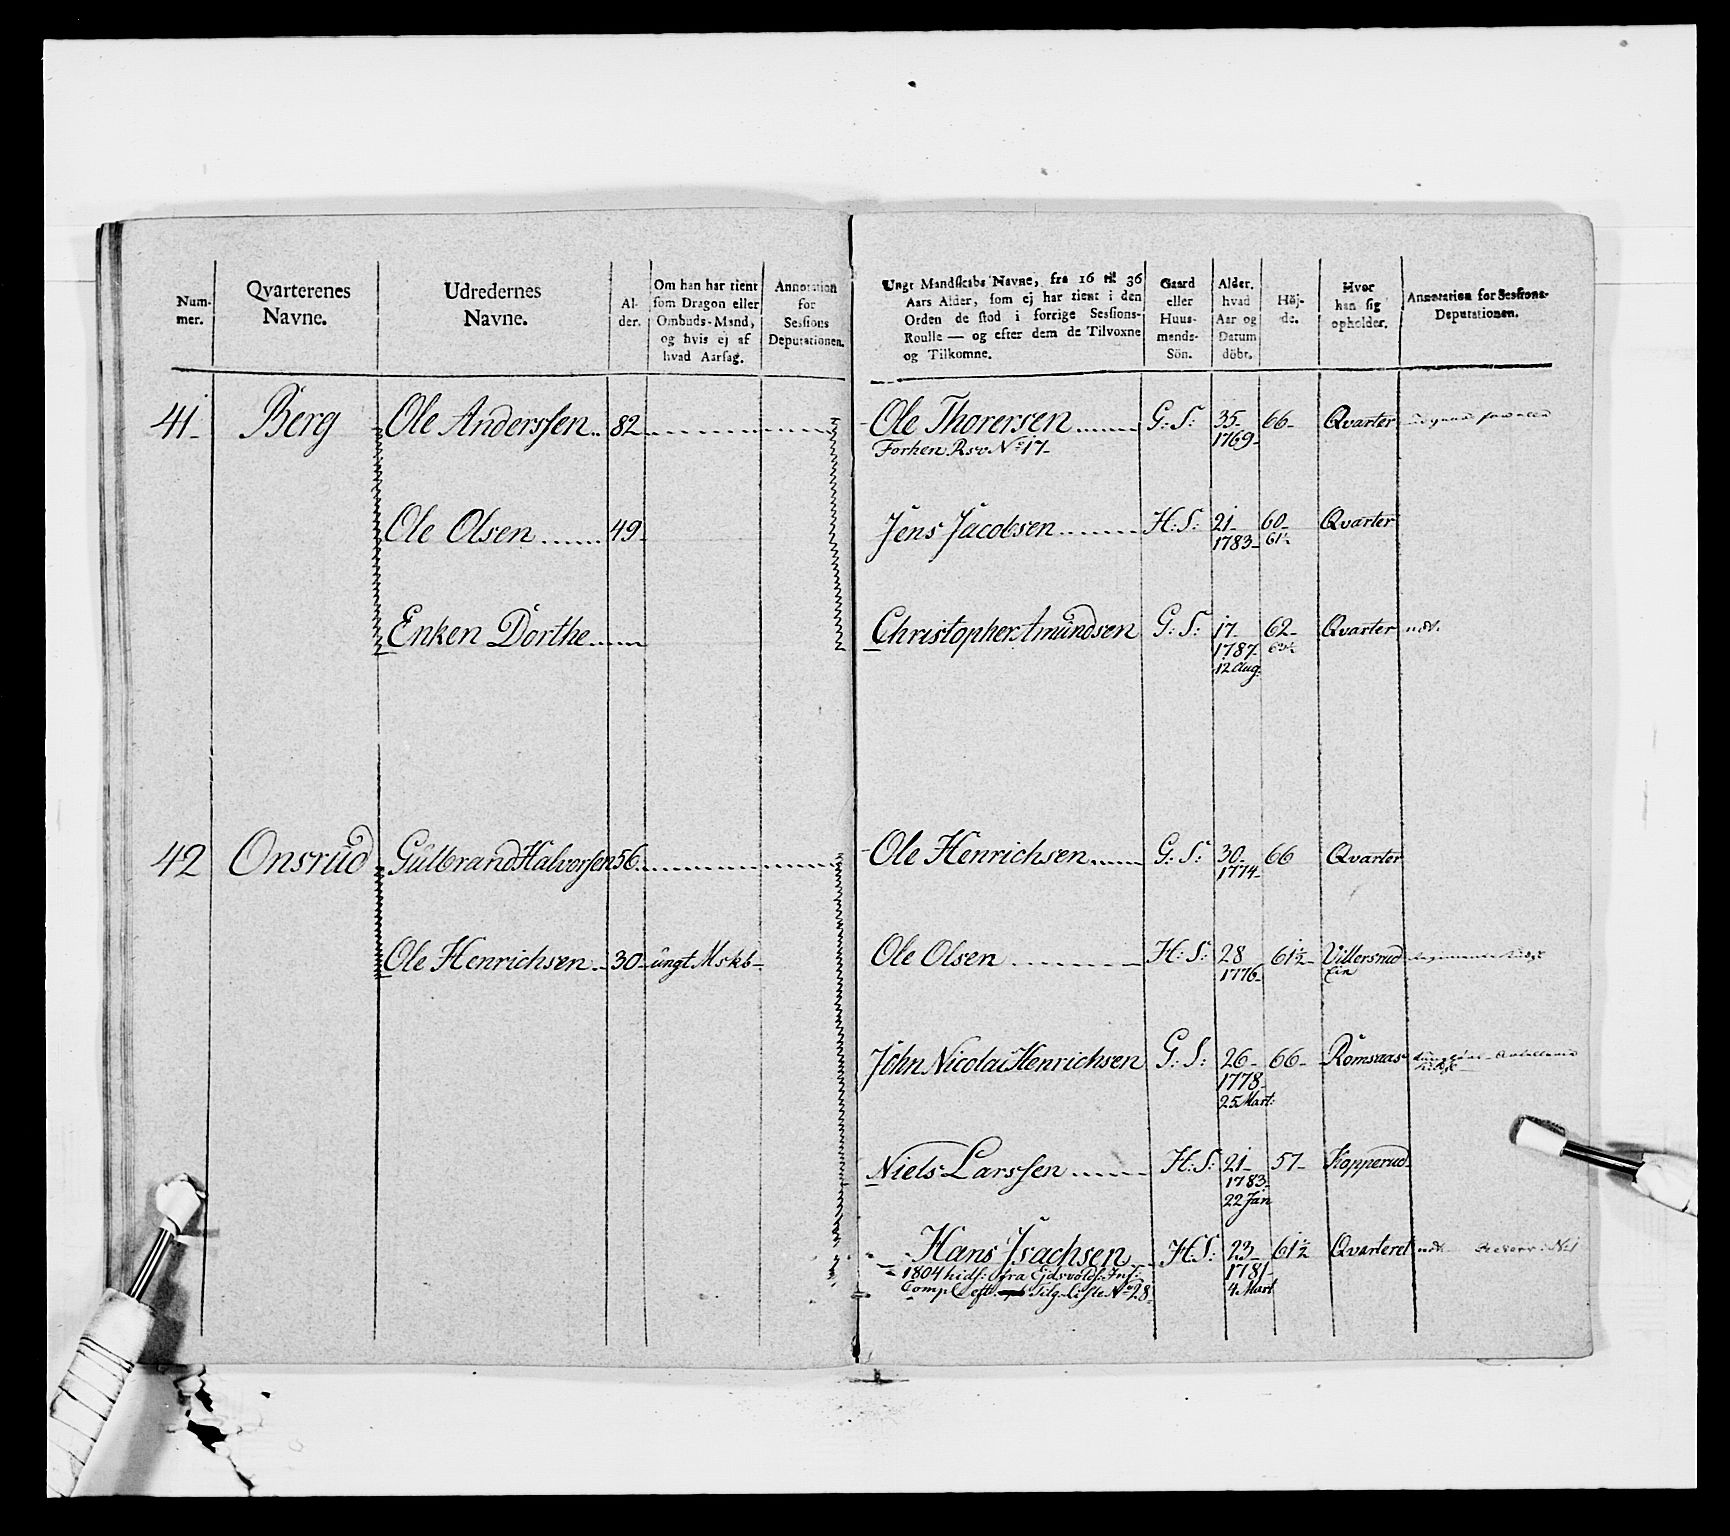 Num-
mer.
Qvarterenes
Navne.
Udredernes
Navne.
Al-
der.
Om han har tient
som Dragon eller
Ombuds-Mand,
og hvis ej af
hvad Aarsag.
Annotation
for
Sessions
Deputationen.
Ungt Mandskabs Navne, fra 16 til 36
Aars Alder, som ej har tient i den
Orden de stod i forrige Sessions-
Roulle — og efter dem de Tilvoxne
og Tilkomne.
Gaard
eller
Huus-
mends-
Sön.
Alder,
hvad
Aar og
Datum
döbt.
Höj-
de.
Hvor
han sig
opholder.
Annotation for Sessions-
Deputationen.
41 Berg Ole Anderssen 82 Ole Thorersen G: S: 35 66 Qvarter
Forhen Rsv No 17 1769
Ole Olsen 49 Jens Jacobsen H: S: 21 60 Qvarter
1783 61½
Enken Dorthe Christopher Amundsen G: S: 17 62 Qvarter udt.
1787
12 Aug.
42 Onsrud Gulbrand Halvorsen 56 Ole Henrichsen G: S: 30 66 Qvarter
1774
Ole Henrichsen 30 ungt Mskb Ole Olsen H: S: 28 61½ Villersrud
1776 Ein
John Nicolai Henrichsen G: S: 26 66 Romsaas
1778
25 Mart:
Niels Larssen H: S: 21 57 Kopperud
1783
22 Jan
Hans Isachsen H: S: 23 61½ Qvarteret udt. Reserv: No 1
1804 hids: fra Ejdsvolds: Inf: 1781
Comp: eft. Tilg. Liste No 28 4 Mart